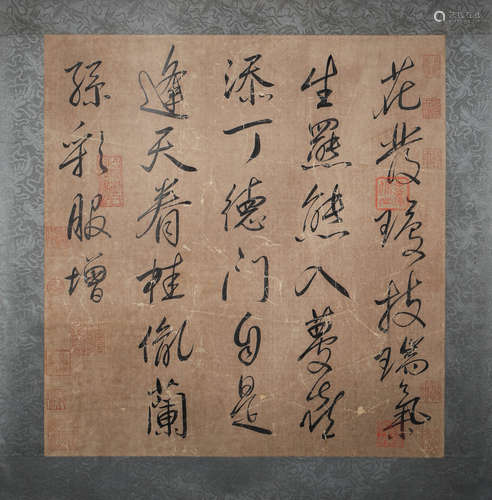 花發瓊枝瑞氣
生羆熊入夢喜
添丁德门自是
逢天眷桂胤蘭
孫彩服增